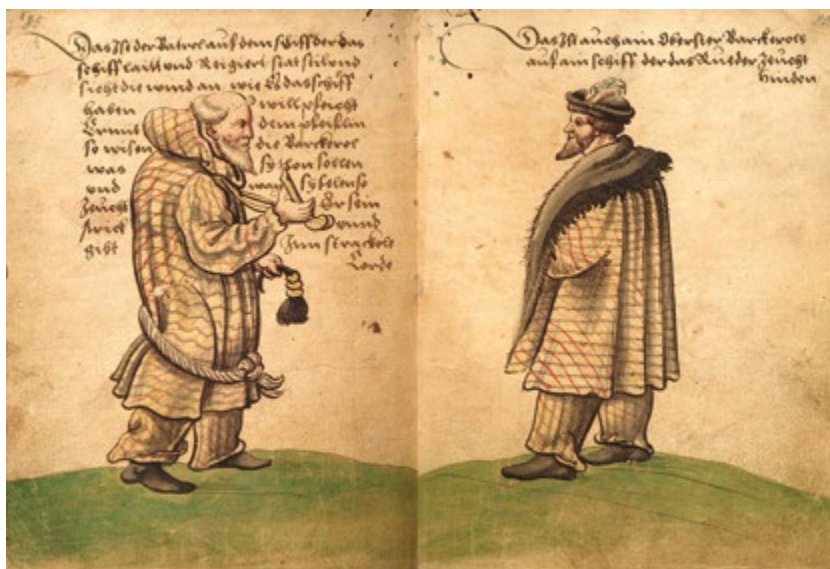 Das Ist der Patrol auf dem schiff der das
schiff laitt und Regiert stat stil und
sicht die wind an wie Er das schiff
haben will pfeicht
Er mit dem pfeiflin
so wisen die Barckerol
was sy thon sollen
und wan sy
Zeucht Er sein
strick und
gibt Im
Das Ist auch ain Oberster Barckerol
auf ain schiff der das Rueder Zeucht
hinden